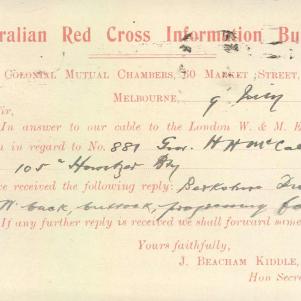 ralian Red Cross Information Bu
COLONIAL MUTUAL CHAMBERS, 60 MARKET STREET,
MELBOURNE, 9 July
ir,
In answer to our cable to the London W. & M. E
n in regard to No. 881 Gnr. H H McCa
105th Howitzer Bty
ve received the following reply: Berkshire
W. back, buttock, progressing fa
If any further reply is received we shall forward same
Yours faithfully,
J. BEACHAM KIDDLE,
Hon Secre